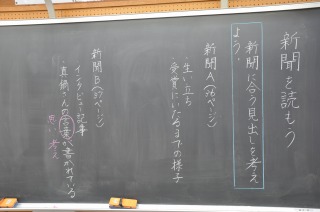 新聞を読もう
新聞に合う見出しを考え
よう。
新聞A(96ページ)
・生い立ち
受賞にいたるまでの様子
新聞B(97ページ)
インタビュー記事
・真鍋さんの言葉が書かれている
思い 考え